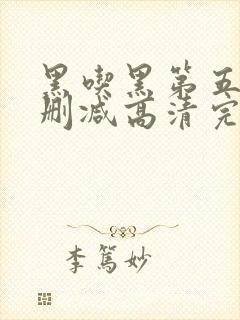 黑喫黑第五
删减高清完
李篤妙